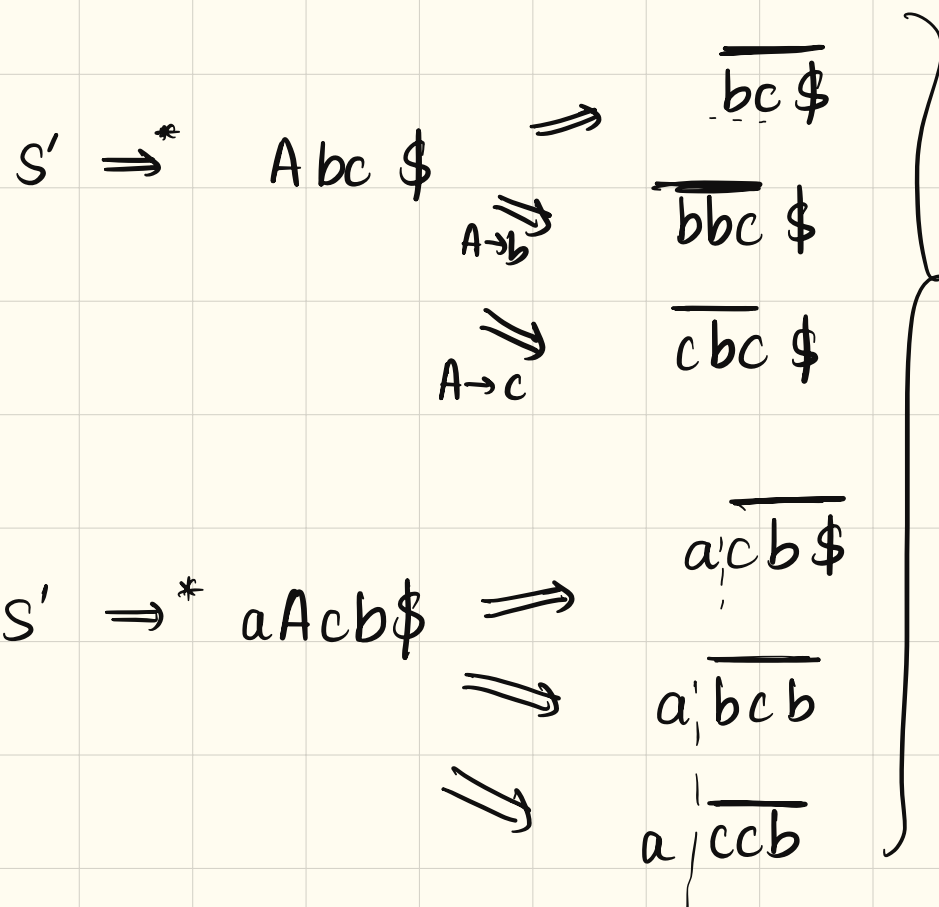 S' ⇒* Abc$ ⇒ bc$
⇒ A→b bbc$
⇒ A→c cbc$
S' ⇒* aAcb$ ⇒ a¦cb$
⇒ a¦bcb
⇒ a¦ccb